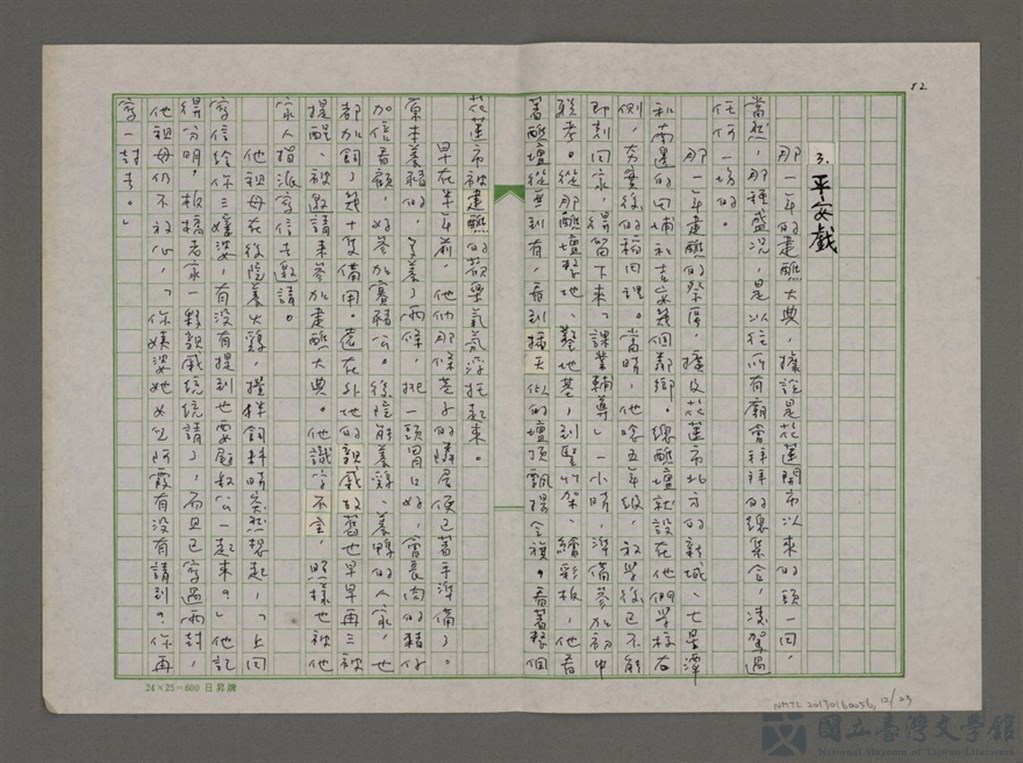 52
3. 平安戲
那一年的建醮大典，據說是花蓮開市以來的頭一回，
當然，那種盛況，是以往所有廟會拜拜的總集合，凌駕過
任何一場的。
那一年建醮的祭區，擴及花蓮市北方的新城、七星潭
和南邊的田埔和吉安幾個鄰鄉。總醮壇就設在他們學校右
側，夯實後的稻田裡。當時，他唸五年級，放學後已不能
即刻回家，得留下來「課業輔導」一小時，準備參加初中
聯考。從那醮壇整地、墊地基，到豎竹架、繪彩板，他看
著醮壇從無到有，看到插天似的壇頂飄揚令旗。看著整個
花蓮市被建醮的歡樂氣氛浮托起來。
早在半年前，他們那條巷子的隣居便已著手準備了。
原本養豬的，多養了兩條，挑一頭胃口好，會長肉的豬仔
加倍看顧，好參加賽豬公。後院能養雞、養鴨的人家，也
都加飼了幾十隻備用。遠在外地的親戚故舊也早早再三被
提醒、被邀請來參加建醮大典。他識字不全，照樣也被他
家人指派寫信去邀請。
他祖母在後院養火雞，攪拌飼料時突然想起，「上回
寫信給你三嬸婆，有沒有提到也要尾叔公一起來。」他記
得分明，板橋老家一夥親戚統統請了，而且已寫過兩封，
他祖母仍不放心，「你姨婆她女兒阿霞有沒有請到？你再
寫一封去。」
24×25=600 日昇牌
NMTL 20130160056, 12/23
國立臺灣文學館
National Museum of Taiwan Literature